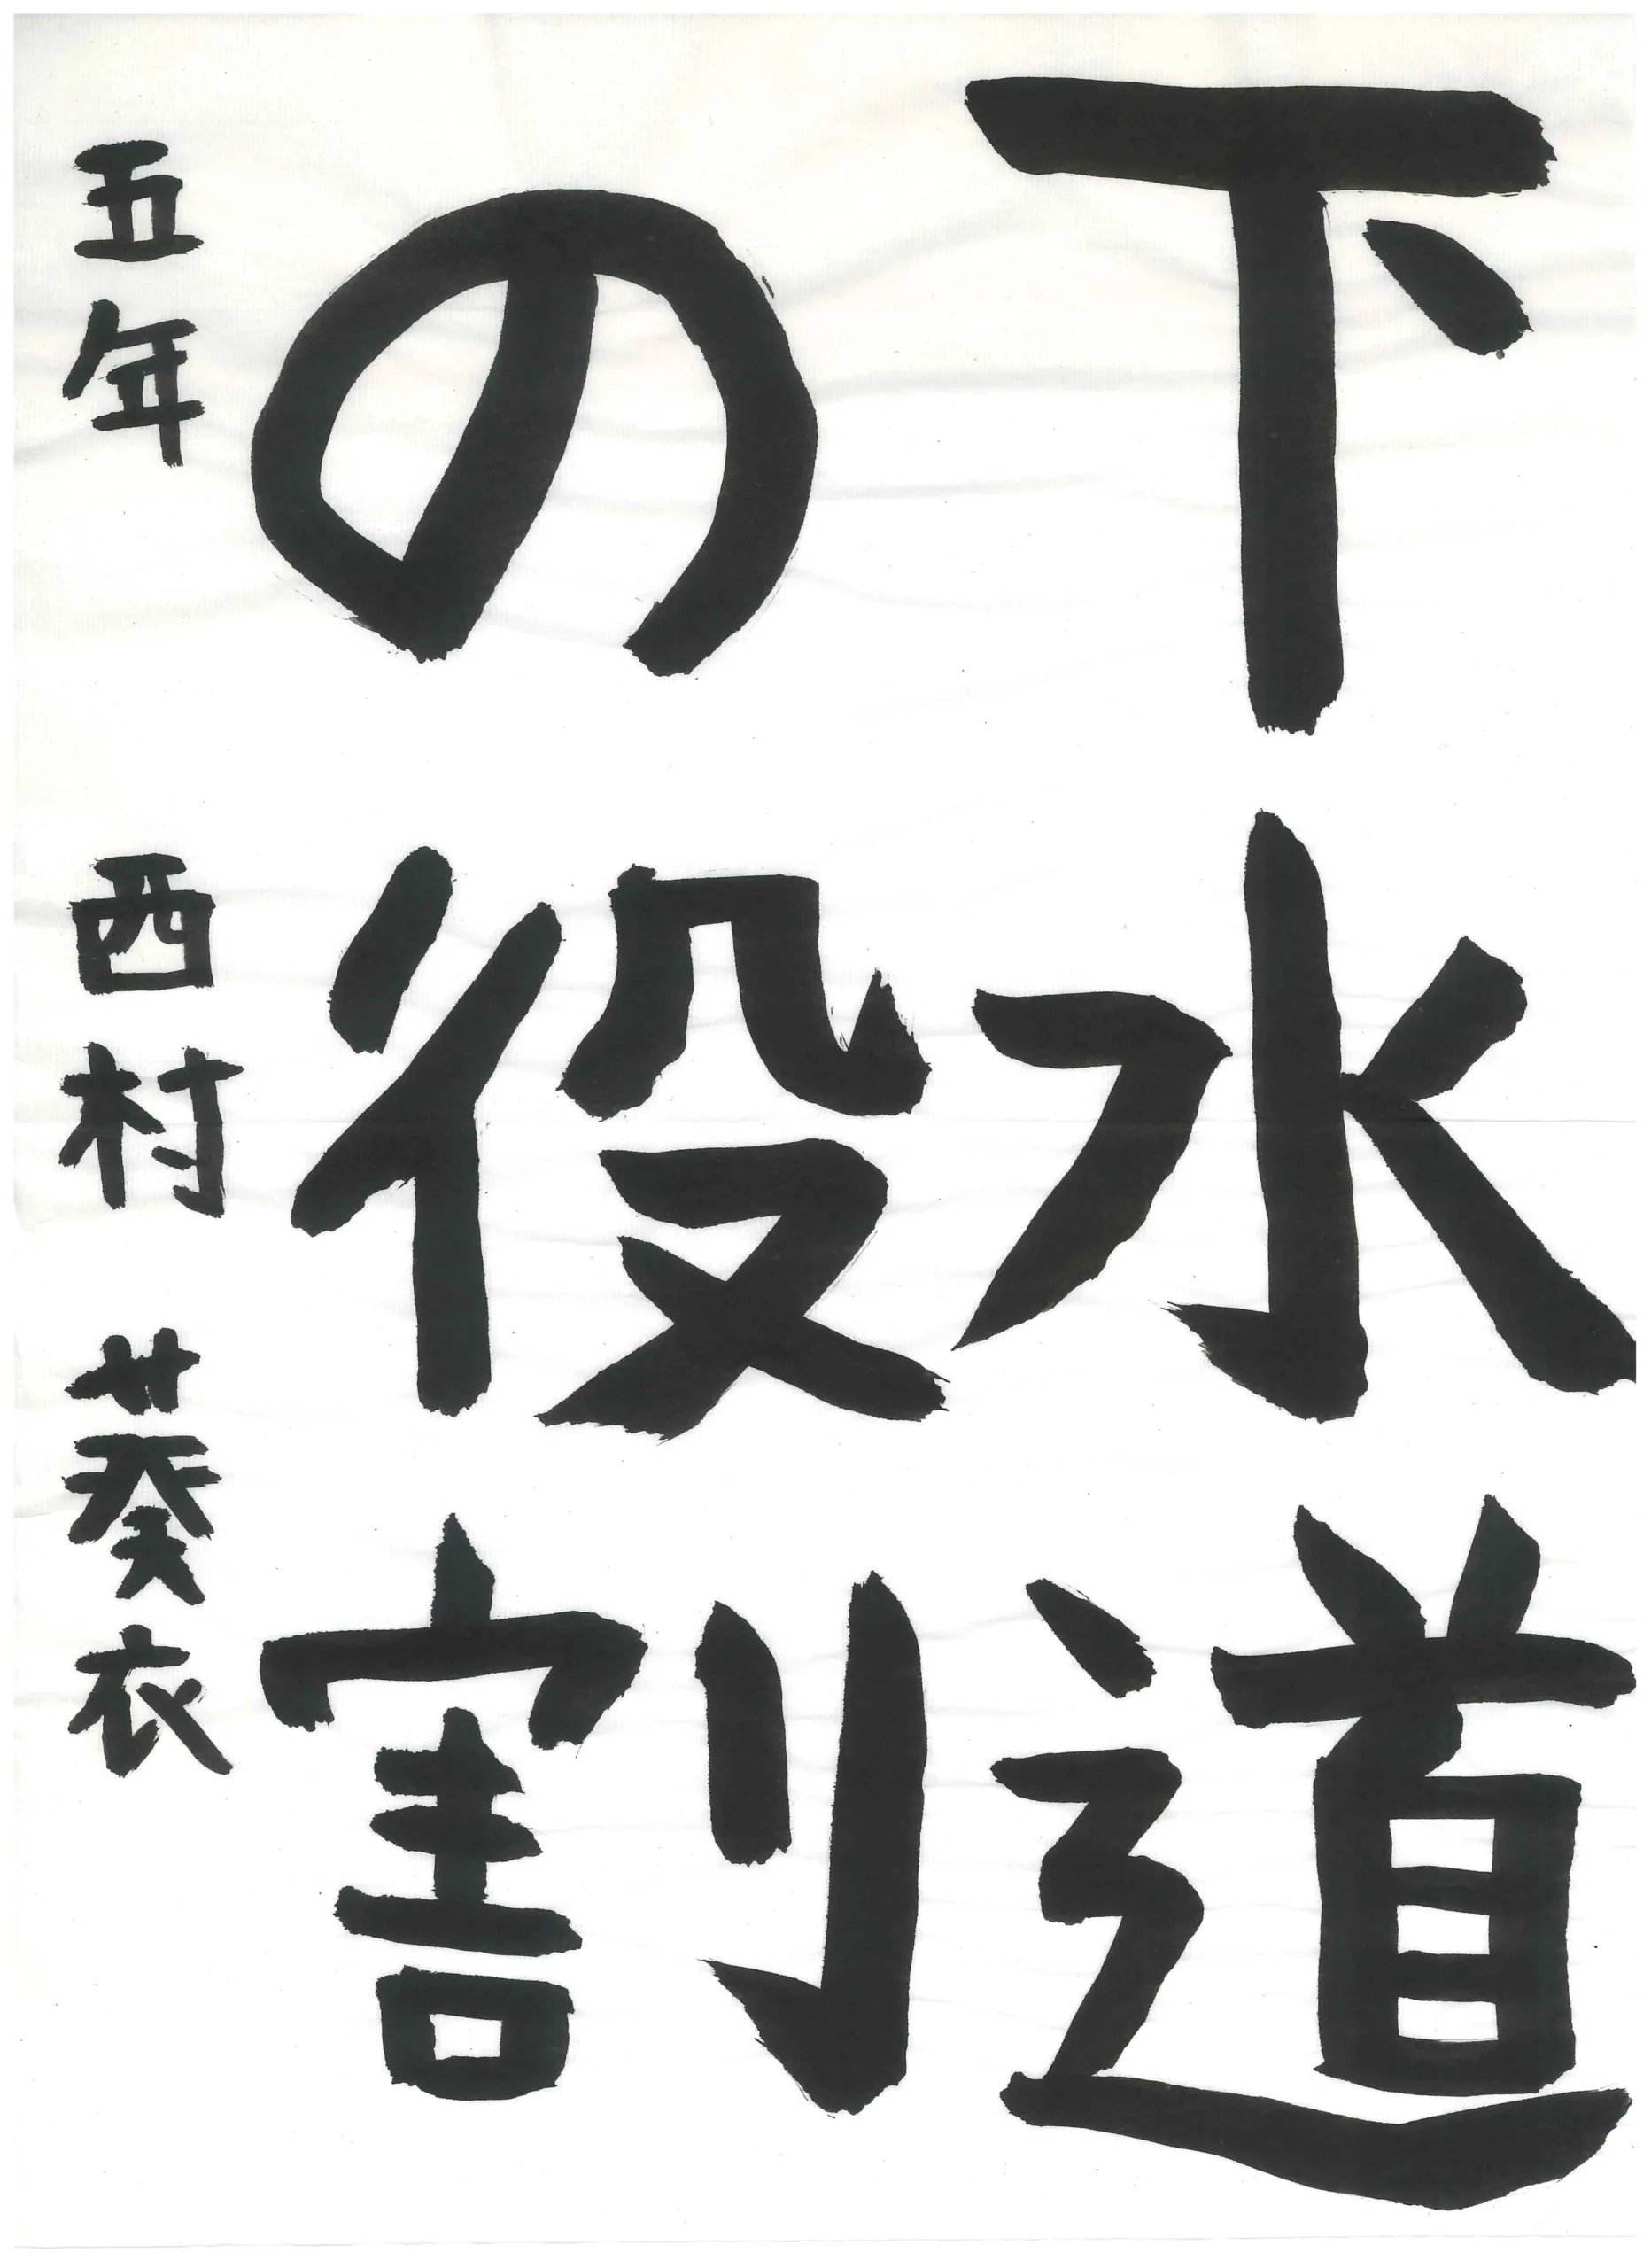 下水道
の役割
五年 西村 葵衣